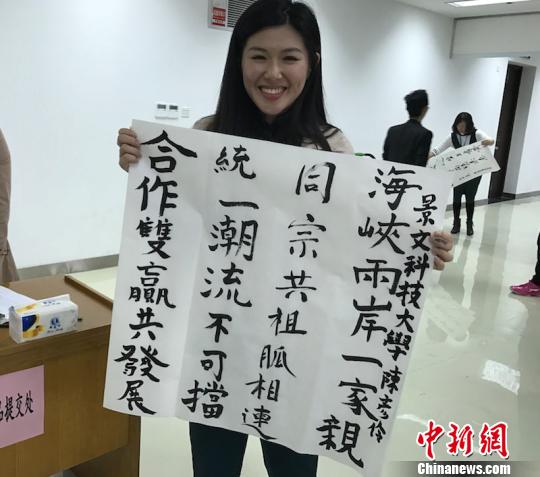 景文科技大學 陳彥伶
海峽兩岸一家親
同宗共祖胍相連
統一潮流不可擋
合作雙贏共發展
品提交处
中新网
Chinanews.com